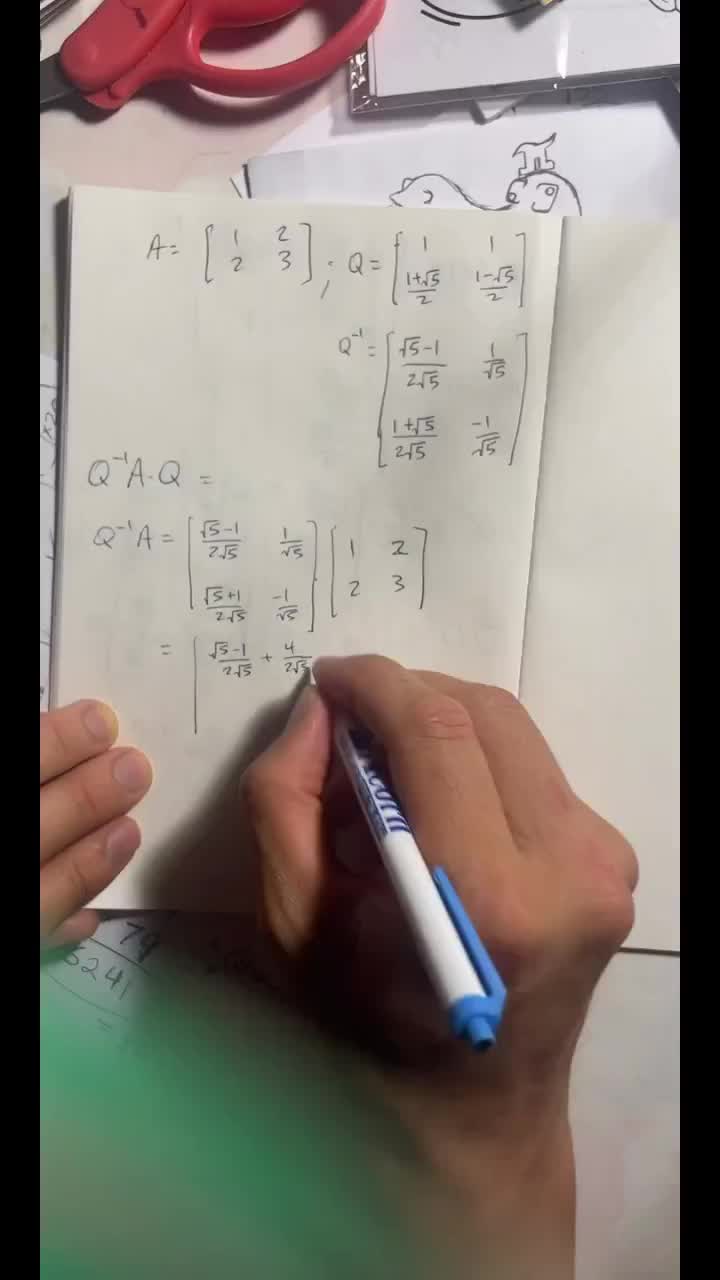 A = [ 1 2 ; 2 3 ] ; Q = [ 1 1 ; (1+√5)/2 (1-√5)/2 ]
Q⁻¹ = [ (√5-1)/(2√5) 1/√5 ; (1+√5)/(2√5) -1/√5 ]
Q⁻¹A·Q =
Q⁻¹A = [ (√5-1)/(2√5) 1/√5 ; (√5+1)/(2√5) -1/√5 ] [ 1 2 ; 2 3 ]
= [ (√5-1)/(2√5) + 4/(2√5)
79
5241
=